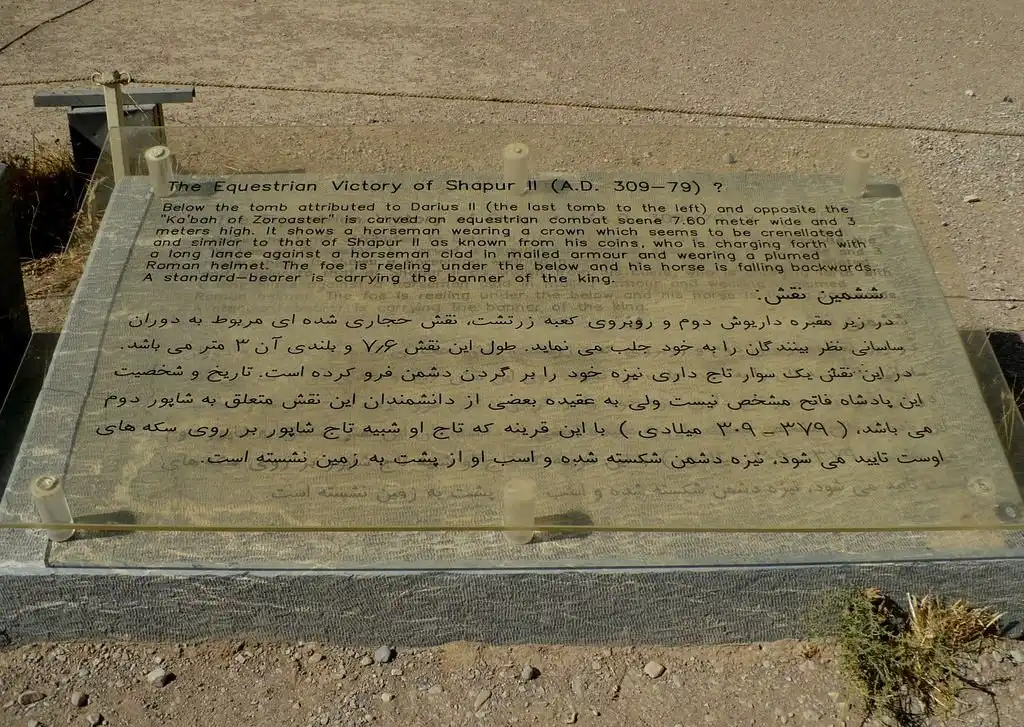 The Equestrian Victory of Shapur II (A.D. 309-79) ?
Below the tomb attributed to Darius II (the last tomb to the left) and opposite the
"Ka'bah of Zoroaster" is carved an equestrian combat scene 7.60 meter wide and 3
meters high. It shows a horseman wearing a crown which seems to be crenellated
and similar to that of Shapur II as known from his coins, who is charging forth with
a long lance against a horseman clad in mailed armour and wearing a plumed
Roman helmet. The foe is reeling under the below and his horse is falling backwards.
A standard-bearer is carrying the banner of the king.
ششمین نقش:
در زیر مقبره داریوش دوم و روبروی کعبه زرتشت، نقش حجاری شده ای مربوط به دوران
ساسانی نظر بینندگان را به خود جلب می نماید. طول این نقش ۷/۶ و بلندی آن ۳ متر می باشد.
در این نقش یک سوار تاج داری نیزه خود را بر گردن دشمن فرو کرده است. تاریخ و شخصیت
این پادشاه فاتح مشخص نیست ولی به عقیده بعضی از دانشمندان این نقش متعلق به شاپور دوم
می باشد، ( ۳۷۹ - ۳۰۹ میلادی ) با این قرینه که تاج او شبیه تاج شاپور بر روی سکه های
اوست تایید می شود، نیزه دشمن شکسته شده و اسب او از پشت به زمین نشسته است.